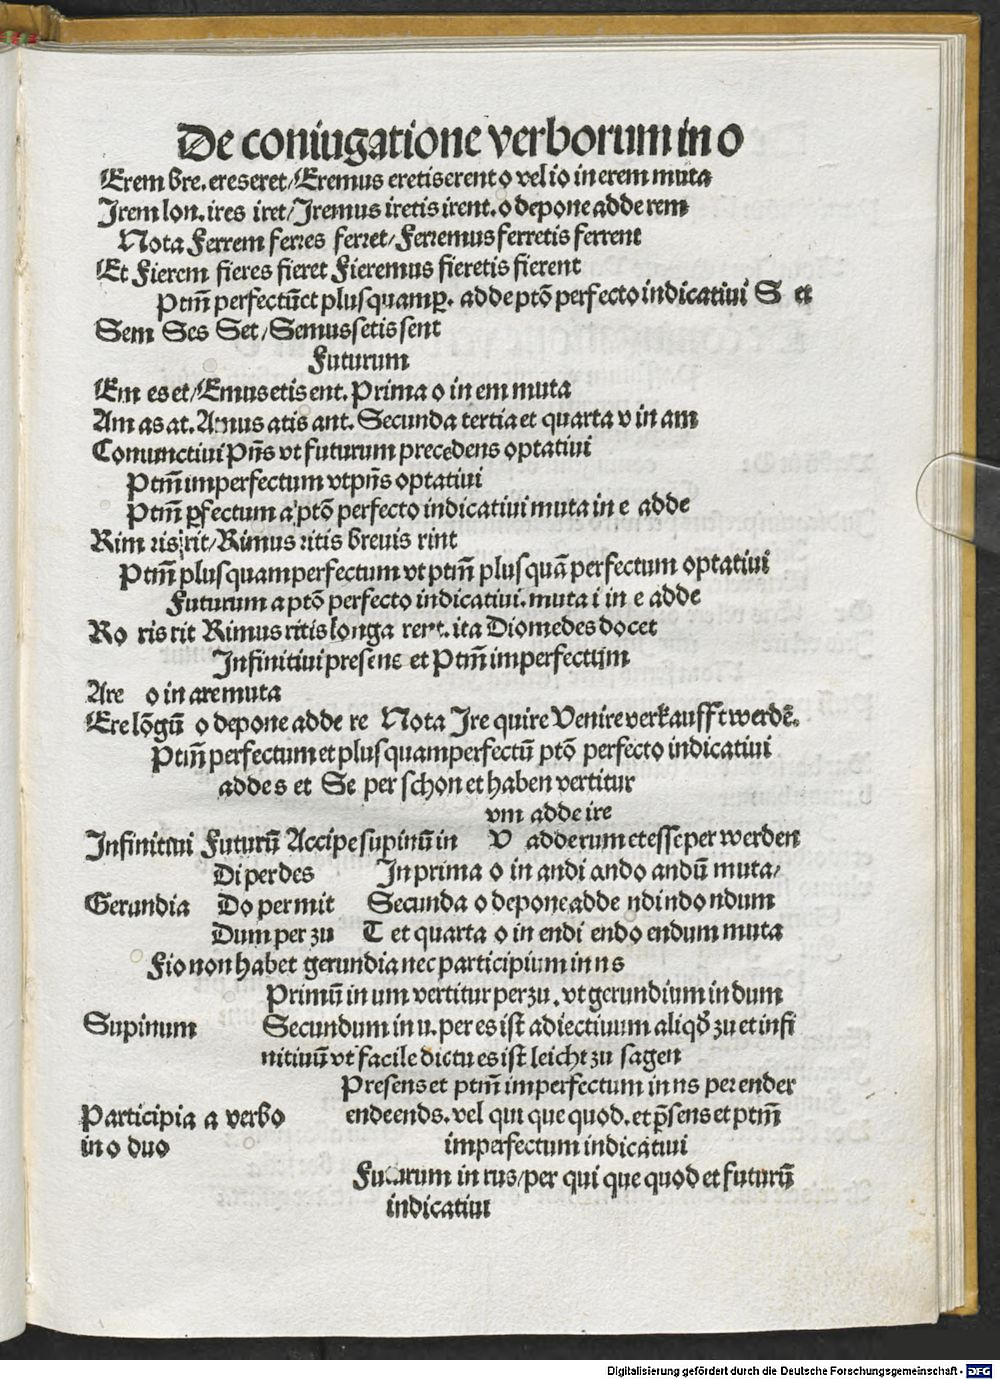 De coniugatione verborum in o
Erem bre. eres eret/Eremus eretis erent o vel io in erem muta
Irem lon. ires iret/Iremus iretis irent. o depone adde rem
Nota Ferrem ferres ferret/Ferremus ferretis ferrent
Et Fierem fieres fieret Fieremus fieretis fierent
Ptm̄ perfectū et plusquamꝑ. adde ptō perfecto indicatiui S et
Sem Ses Set/Semus setis sent
Futurum
Em es et/Emus etis ent. Prima o in em muta
Am as at. Amus atis ant. Secunda tertia et quarta o in am
Coniunctiui Pn̄s vt futurum precedens optatiui
Ptm̄ imperfectum vt pn̄s optatiui
Ptm̄ ꝑfectum a ptō perfecto indicatiui muta i in e adde
Rim ris rit/Rimus ritis breuis rint
Ptm̄ plusquamperfectum vt ptm̄ plusquā perfectum optatiui
Futurum a ptō perfecto indicatiui. muta i in e adde
Ro ris rit Rimus ritis longa rent. ita Diomedes docet
Infinitiui presens et Ptm̄ imperfectum
Are o in are muta
Ere lōgū o depone adde re Nota Ire quire Venire verkaufft werdē.
Ptm̄ perfectum et plusquamperfectū ptō perfecto indicatiui
adde s et Se per schon et haben vertitur
vm adde ire
Infinitiui Futurū Accipe supinū in V adde rum et esse per werden
Di per des In prima o in andi ando andū muta/
Gerundia Do per mit Secunda o depone adde ndi ndo ndum
Dum per zu T et quarta o in endi endo endum muta
Fio non habet gerundia nec participium in ns
Primū in um vertitur per zu. vt gerundium in dum
Supinum Secundum in u. per es ist adiectiuum aliqđ zu et infi
nitiuū vt facile dictu es ist leicht zu sagen
Presens et ptm̄ imperfectum in ns per ender
Participia a verbo ende ends. vel qui que quod. et p̄sens et ptm̄
in o duo imperfectum indicatiui
Futurum in rus/per qui que quod et futurū
indicatiui
Digitalisierung gefördert durch die Deutsche Forschungsgemeinschaft - DFG